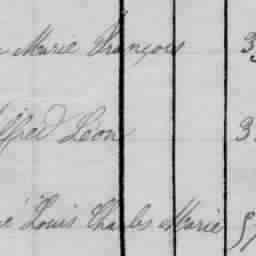 Marie François 3
Alfred Léon 3
Louis Charles Marie 5